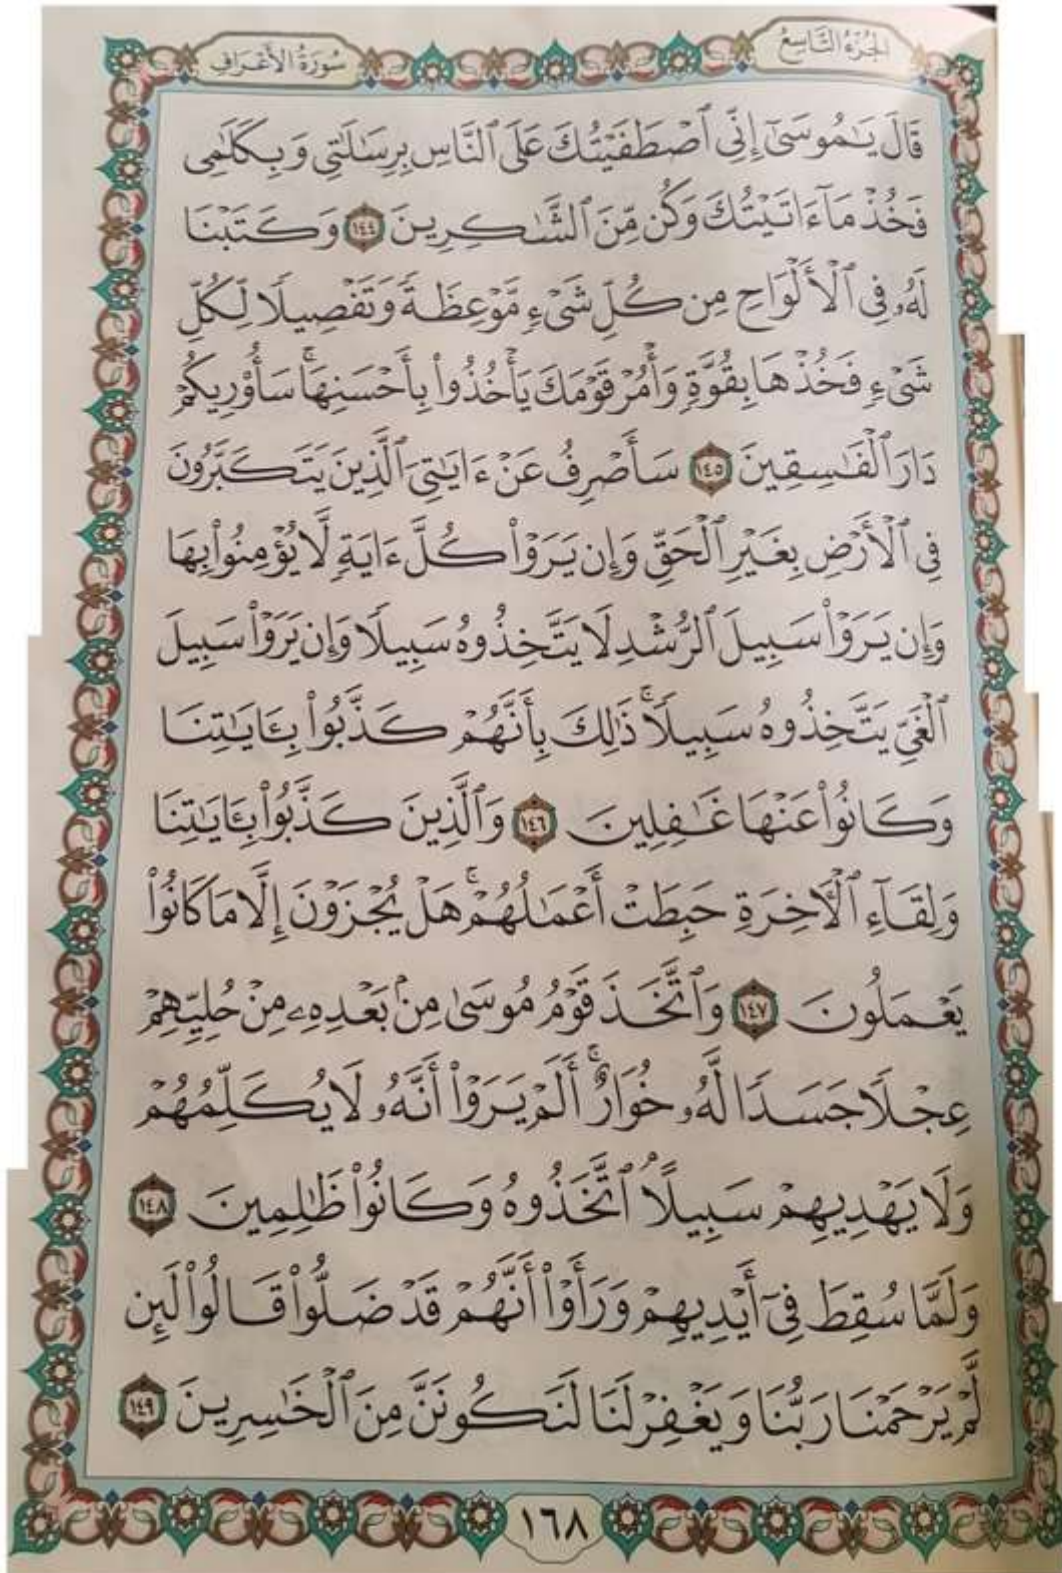 الجُزْءُ التَّاسِعُ
سُورَةُ الأَعْرَافِ
قَالَ يَٰمُوسَىٰٓ إِنِّي ٱصْطَفَيْتُكَ عَلَى ٱلنَّاسِ بِرِسَٰلَٰتِي وَبِكَلَٰمِي
فَخُذْ مَآ ءَاتَيْتُكَ وَكُن مِّنَ ٱلشَّٰكِرِينَ ١٤٤ وَكَتَبْنَا
لَهُۥ فِي ٱلْأَلْوَاحِ مِن كُلِّ شَيْءٍ مَّوْعِظَةً وَتَفْصِيلًا لِّكُلِّ
شَيْءٍ فَخُذْهَا بِقُوَّةٍ وَأْمُرْ قَوْمَكَ يَأْخُذُوا۟ بِأَحْسَنِهَا ۚ سَأُو۟رِيكُمْ
دَارَ ٱلْفَٰسِقِينَ ١٤٥ سَأَصْرِفُ عَنْ ءَايَٰتِيَ ٱلَّذِينَ يَتَكَبَّرُونَ
فِي ٱلْأَرْضِ بِغَيْرِ ٱلْحَقِّ وَإِن يَرَوْا۟ كُلَّ ءَايَةٍ لَّا يُؤْمِنُوا۟ بِهَا
وَإِن يَرَوْا۟ سَبِيلَ ٱلرُّشْدِ لَا يَتَّخِذُوهُ سَبِيلًا وَإِن يَرَوْا۟ سَبِيلَ
ٱلْغَيِّ يَتَّخِذُوهُ سَبِيلًا ۚ ذَٰلِكَ بِأَنَّهُمْ كَذَّبُوا۟ بِـَٔايَٰتِنَا
وَكَانُوا۟ عَنْهَا غَٰفِلِينَ ١٤٦ وَٱلَّذِينَ كَذَّبُوا۟ بِـَٔايَٰتِنَا
وَلِقَآءِ ٱلْـَٔاخِرَةِ حَبِطَتْ أَعْمَٰلُهُمْ ۚ هَلْ يُجْزَوْنَ إِلَّا مَا كَانُوا۟
يَعْمَلُونَ ١٤٧ وَٱتَّخَذَ قَوْمُ مُوسَىٰ مِنۢ بَعْدِهِۦ مِنْ حُلِيِّهِمْ
عِجْلًا جَسَدًا لَّهُۥ خُوَارٌ ۚ أَلَمْ يَرَوْا۟ أَنَّهُۥ لَا يُكَلِّمُهُمْ
وَلَا يَهْدِيهِمْ سَبِيلًا ۘ ٱتَّخَذُوهُ وَكَانُوا۟ ظَٰلِمِينَ ١٤٨
وَلَمَّا سُقِطَ فِيٓ أَيْدِيهِمْ وَرَأَوْا۟ أَنَّهُمْ قَدْ ضَلُّوا۟ قَالُوا۟ لَئِن
لَّمْ يَرْحَمْنَا رَبُّنَا وَيَغْفِرْ لَنَا لَنَكُونَنَّ مِنَ ٱلْخَٰسِرِينَ ١٤٩
١٦٨